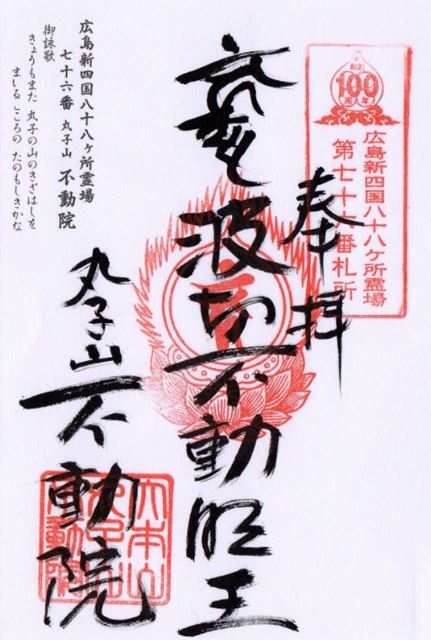 100
周年
広島新四国八十八ヶ所霊場
第七十六番札所
奉拝
波切不動明王
丸子山不動院
広島新四国八十八ヶ所霊場
七十六番 丸子山 不動院
御詠歌
きょうもまた 丸子の山のきざはしを
まいる こころの たのもしきかな